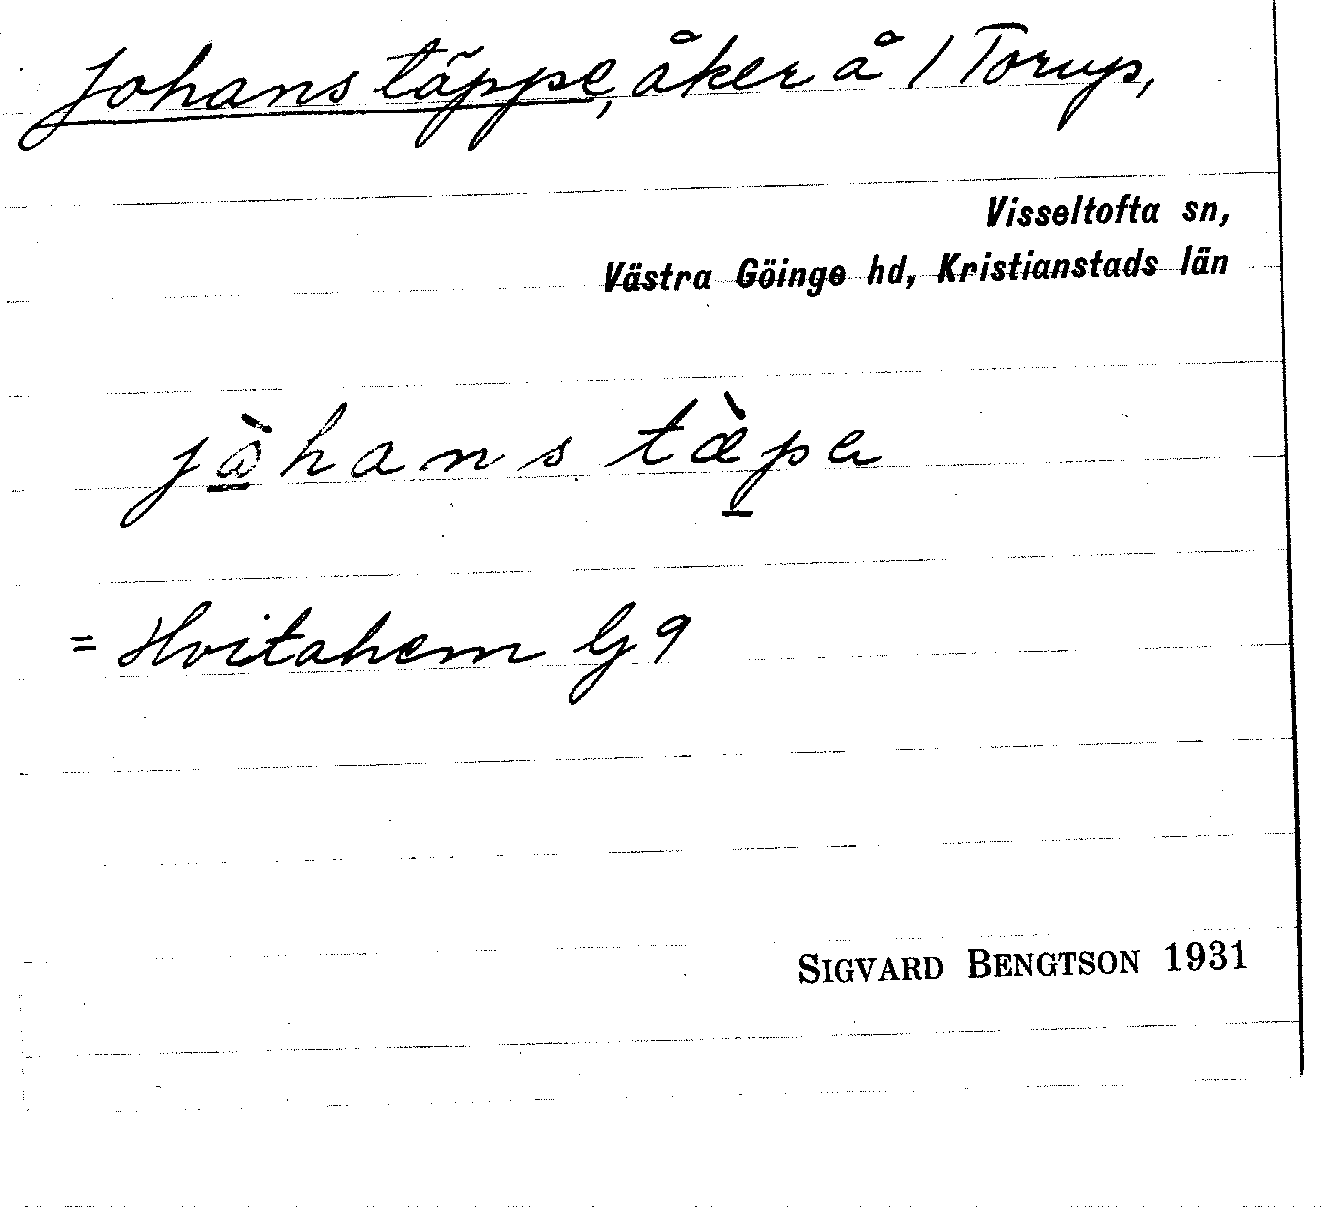 Johans täppe, åker å 1 Torup,
Visseltofta sn,
Västra Göinge hd, Kristianstads län
jòhans tæ̀pa
= Hvitahem G 9
SIGVARD BENGTSON 1931